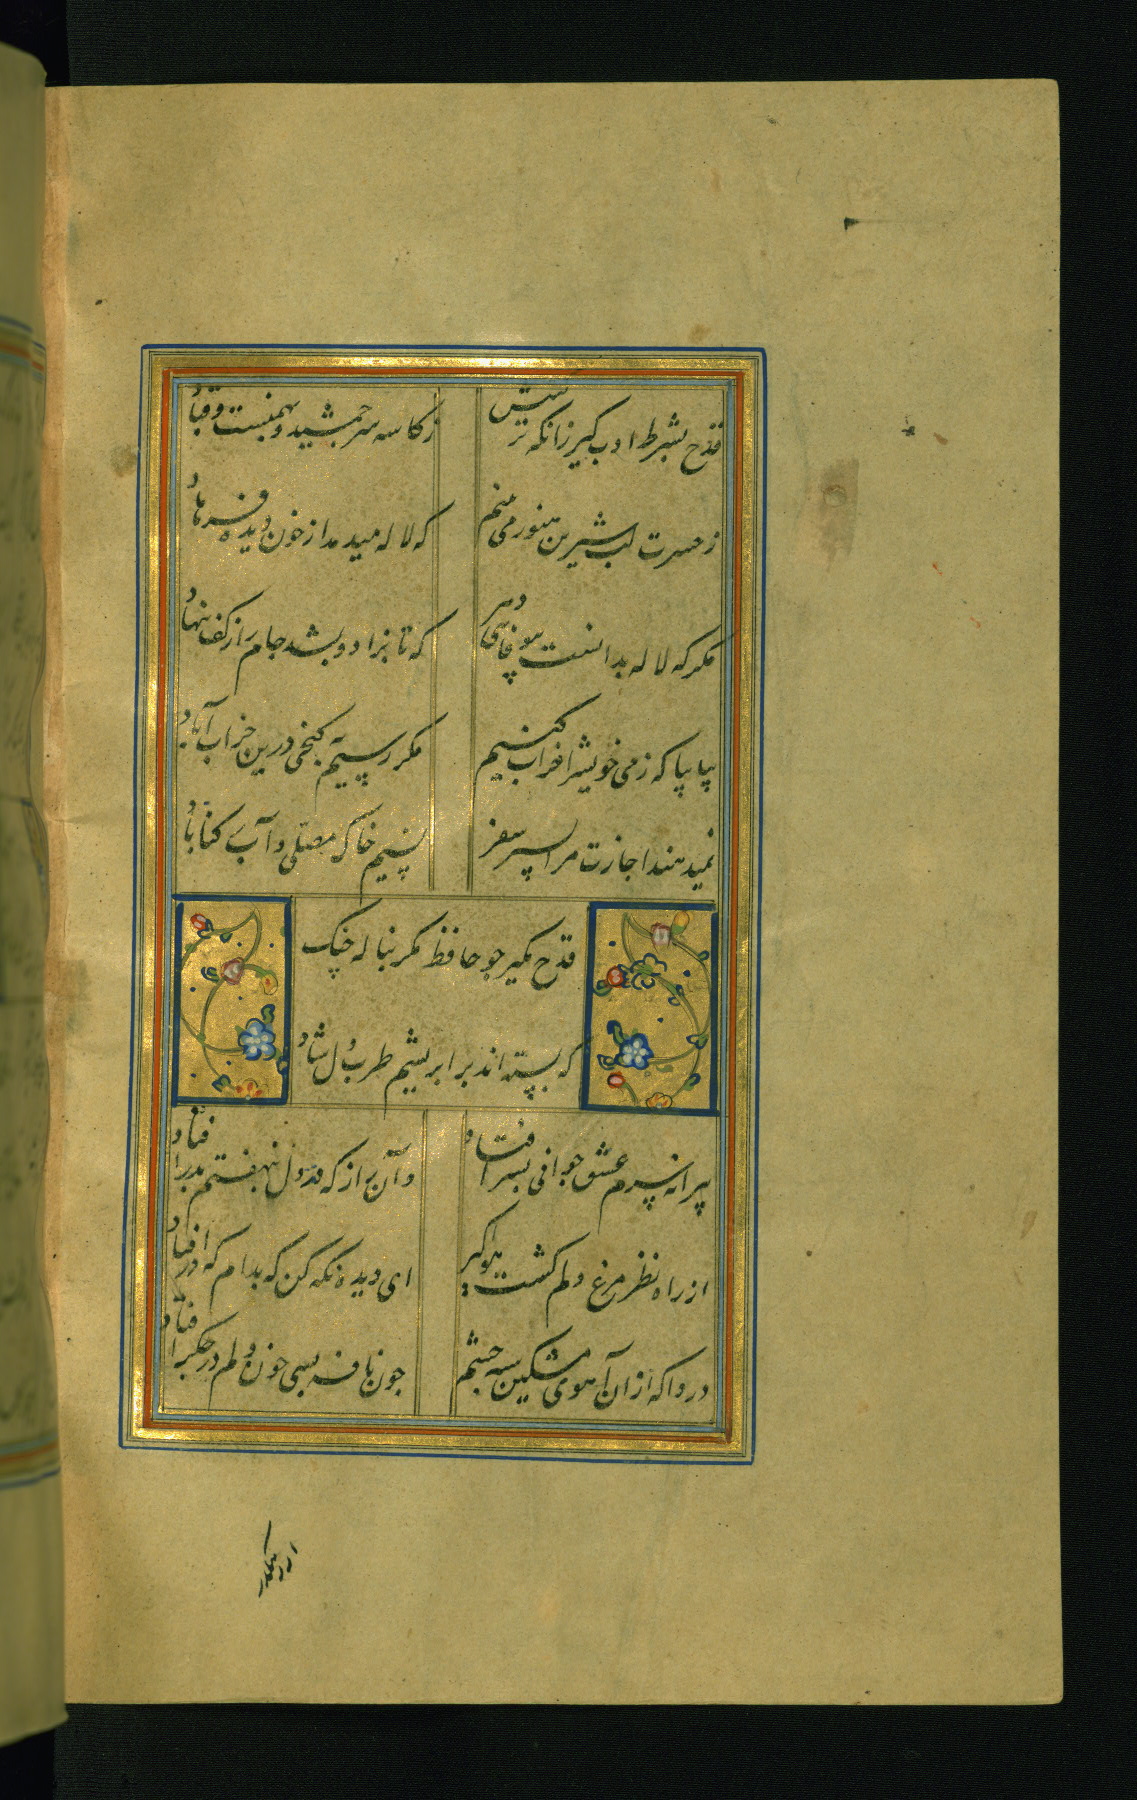 قدح بشرط ادب گیر زانکه ترکیبش
ز کاسه سر جمشید و بهمنست و قباد
ز حسرت لب شیرین هنوز می بینم
که لاله میدمد از خون دیده فرهاد
مگر که لاله بدانست بیوفائی دهر
که تا بزاد و بشد جام می ز کف ننهاد
بیا بیا که ز می خویش را خراب کنیم
مگر رسیم بگنجی درین خراب آباد
نمیدهند اجازت مرا بسیر سفر
نسیم خاک مصلی و آب رکناباد
قدح مگیر چو حافظ مگر بناله چنگ
که بسته اند بر ابریشم طرب دل شاد
پیرانه سرم عشق جوانی بسر افتاد
وآن راز که در دل بنهفتم بدر افتاد
از راه نظر مرغ دلم کشت هواگیر
ای دیده نگه کن که بدام که در افتاد
دردا که از ان آهوی مشکین سیه چشم
چون نافه بسی خون دلم در جگر افتاد